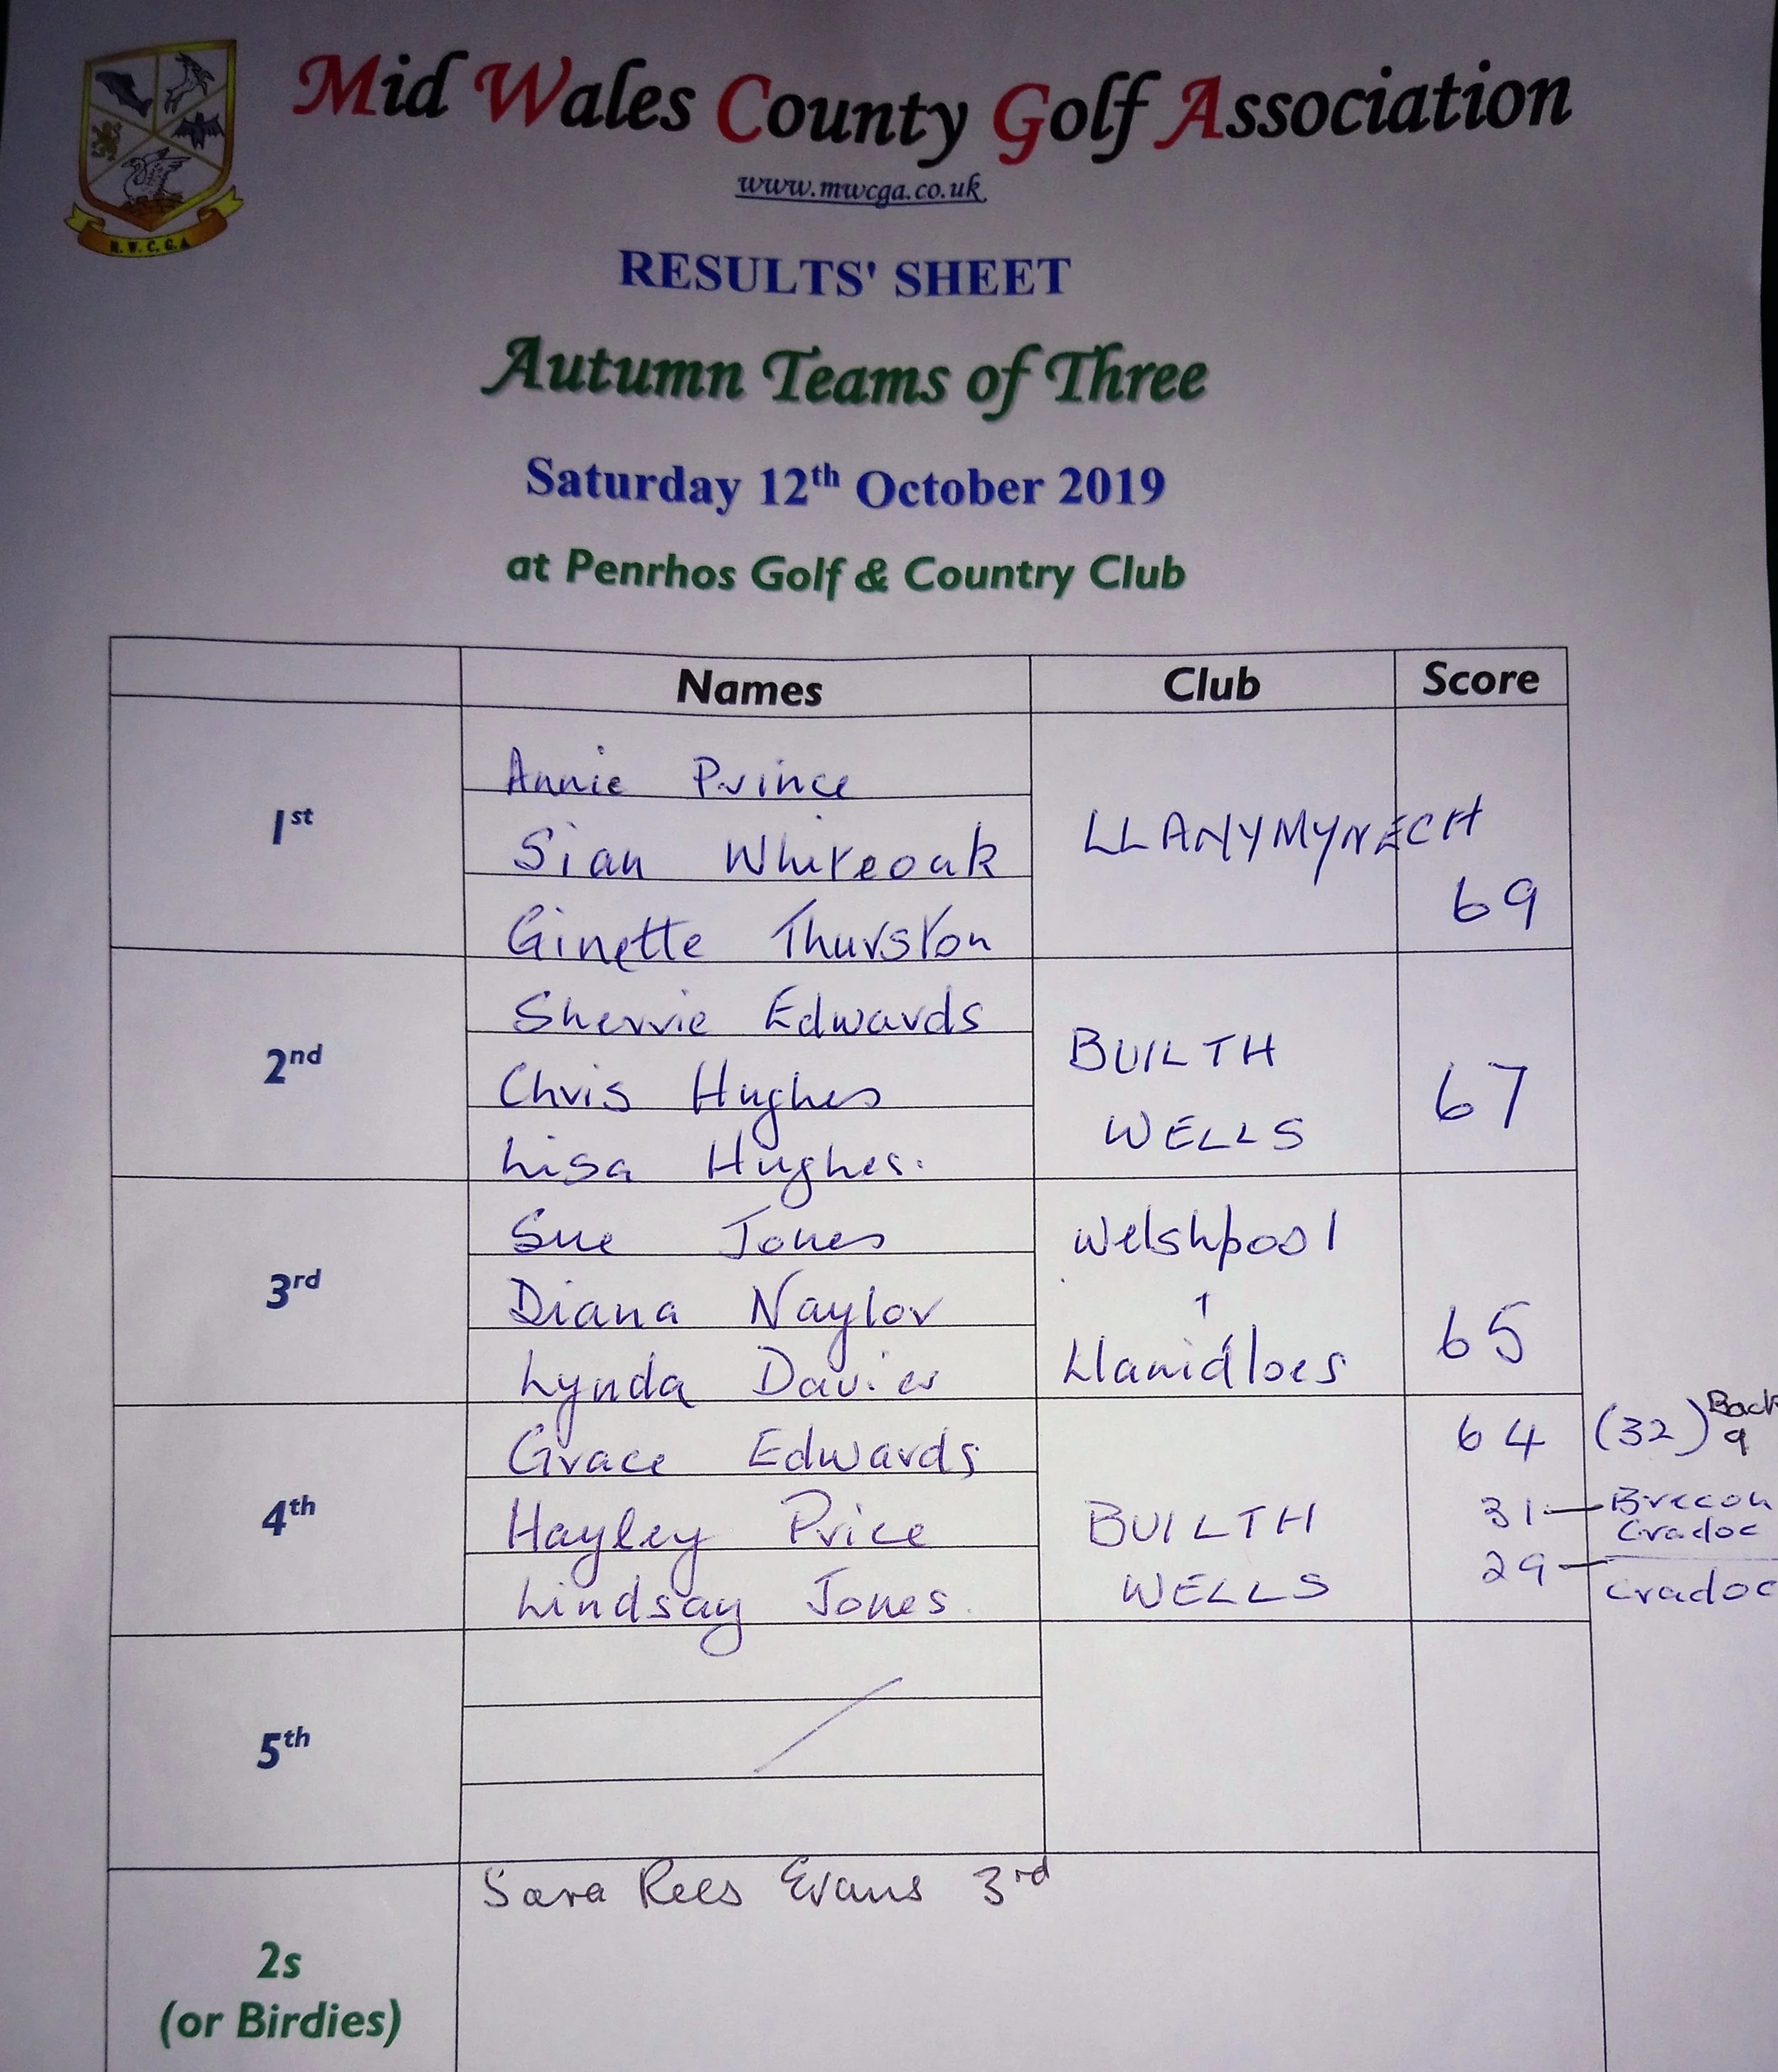 Mid Wales County Golf Association
www.mwcga.co.uk
M.W.C.G.A
RESULTS' SHEET
Autumn Teams of Three
Saturday 12th October 2019
at Penrhos Golf & Country Club
Names Club Score
1st
Annie Prince
Sian Whiteoak
Ginette Thurston
LLANYMYNECH
69
2nd
Sherrie Edwards
Chris Hughes
Lisa Hughes.
BUILTH
WELLS
67
3rd
Sue Jones
Diana Naylor
Lynda Davies
Welshpool
Llanidloes
65
4th
Grace Edwards
Hayley Price
Lindsay Jones.
BUILTH
WELLS
64 (32) Back 9
31 – Brecon
Cradoc
29 – Cradoc
5th
2s
(or Birdies)
Sara Rees Evans 3rd